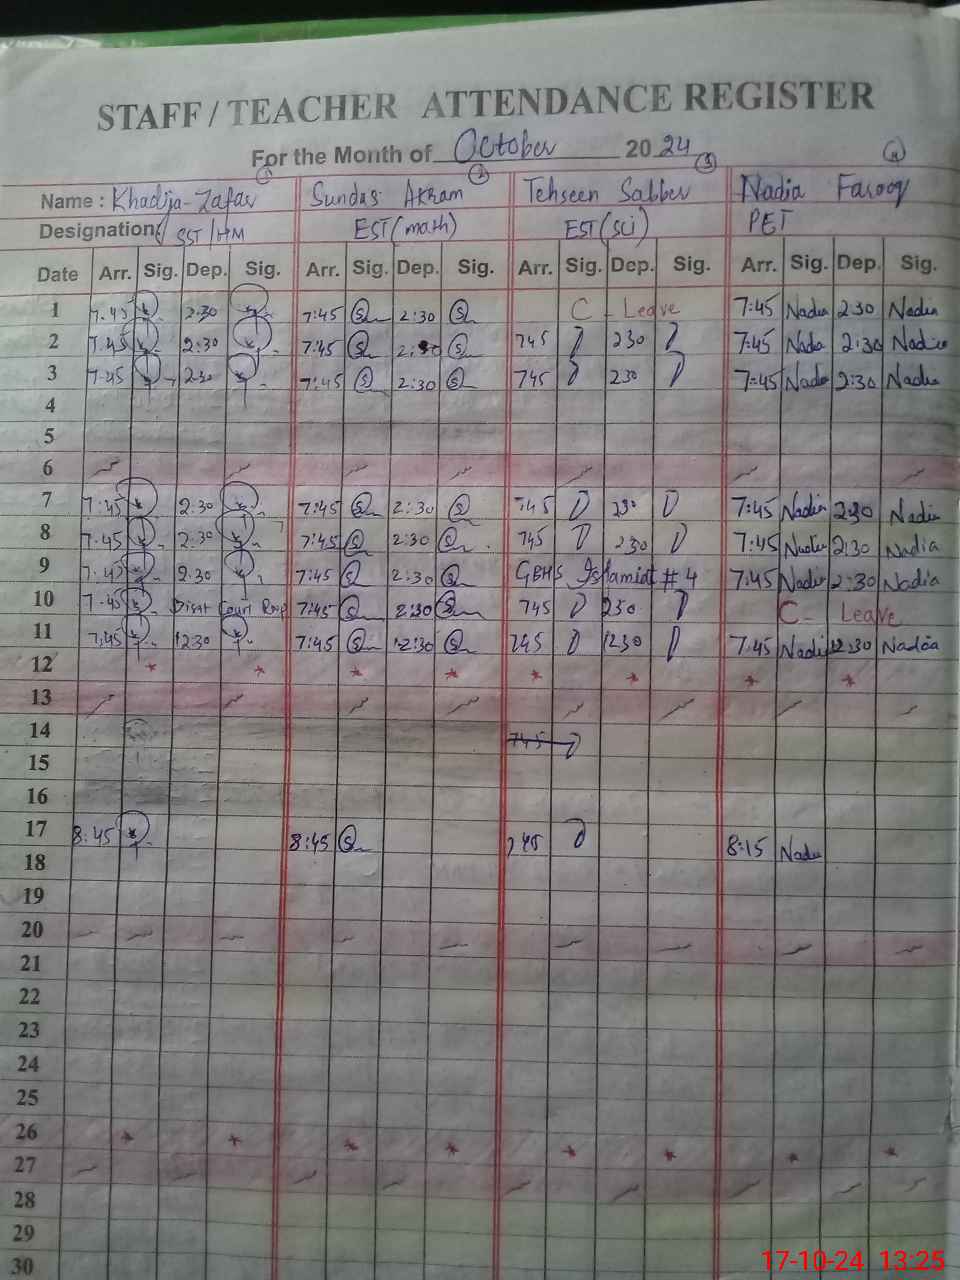 STAFF / TEACHER ATTENDANCE REGISTER
For the Month of October 2024
1 2 3 4
Name : Khadija Zafar Sundas Akram Tehseen Sabber Nadia Farooq
Designation SST/HM EST(math) EST(sci) PET
Date Arr. Sig. Dep. Sig. Arr. Sig. Dep. Sig. Arr. Sig. Dep. Sig. Arr. Sig. Dep. Sig.
1 7.45 2.30 7:45 S 2:30 S C - Leave 7:45 Nadia 2:30 Nadia
2 7.45 2:30 7:45 S 2:30 S 745 230 7:45 Nadia 2:30 Nadia
3 7.45 2.30 7:45 S 2:30 S 745 230 7:45 Nadia 2:30 Nadia
4
5
6
7 7:45 2:30 7:45 S 2:30 S 745 230 7:45 Nadia 2:30 Nadia
8 7.45 2:30 7:45 S 2:30 S 745 230 7:45 Nadia 2:30 Nadia
9 7.45 2.30 7:45 S 2:30 S GBHS # 4 7:45 Nadia 2:30 Nadia
10 7.45 Court 7:45 S 2:30 S 745 230 C - Leave
11 7.45 12.30 7:45 S 12:30 S 745 1230 7:45 Nadia 12:30 Nadia
12 * * * * * * * *
13
14 745
15
16
17 8:45 8:45 S 745 8:15 Nadia
18
19
20
21
22
23
24
25
26 * * * * * * * *
27
28
29
30
17-10-24 13:25